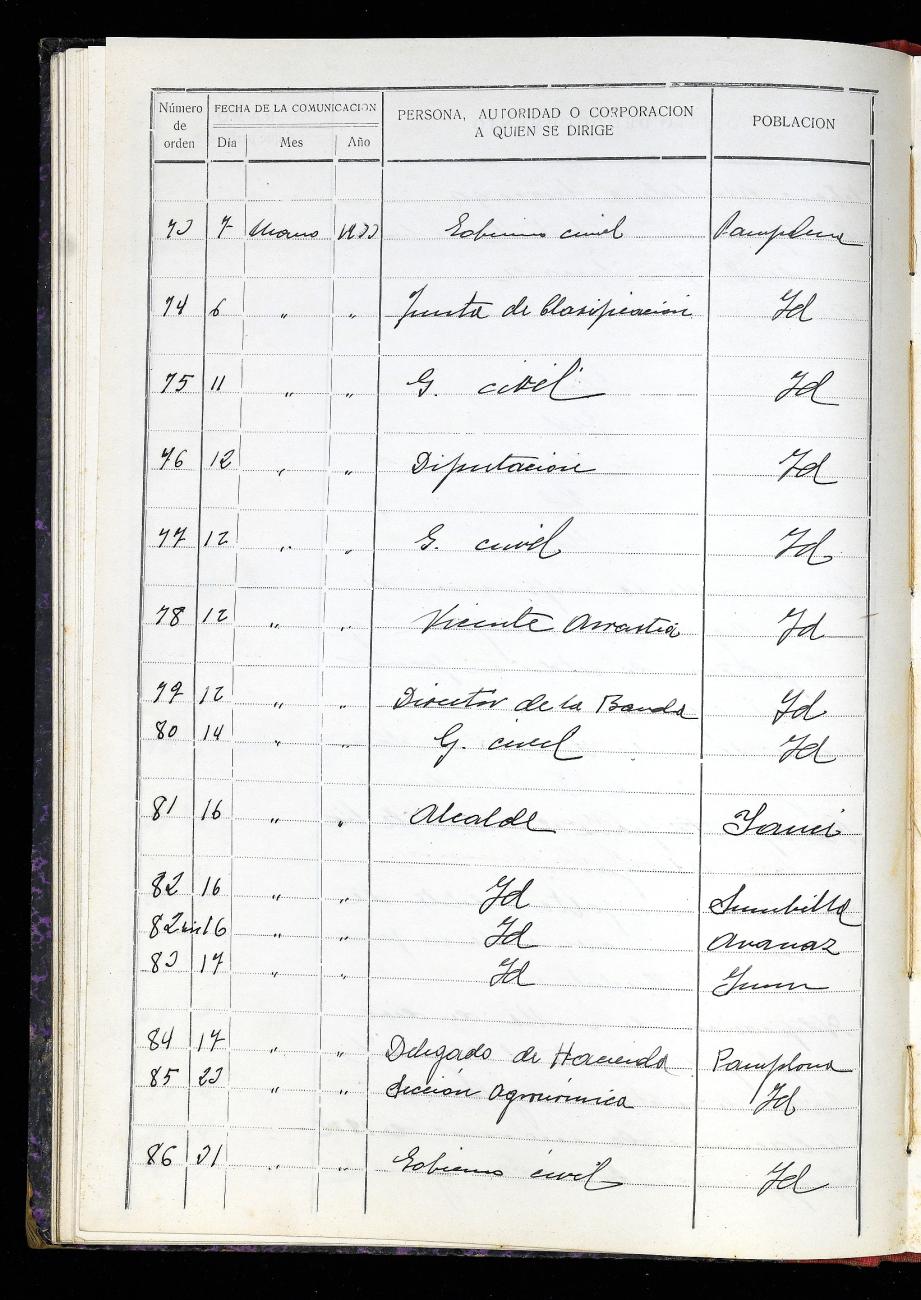 Número de orden FECHA DE LA COMUNICACION PERSONA, AUTORIDAD O CORPORACION A QUIEN SE DIRIGE POBLACION
Día Mes Año
73 7 Marzo 1933 Gobierno civil Pamplona
74 6 " " Junta de Clasificación Id
75 11 " " G. civil Id
76 12 " " Diputación Id
77 12 " " G. civil Id
78 12 " " Vicente Arrastia Id
79 12 " " Director de la Banda Id
80 14 " " G. civil Id
81 16 " " Alcalde Yanci
82 16 " " Id Sumbilla
82 bis 16 " " Id Aranaz
83 17 " " Id Irun
84 17 " " Delegado de Hacienda Pamplona
85 23 " " Sección Agronómica Id
86 31 " " Gobierno civil Id